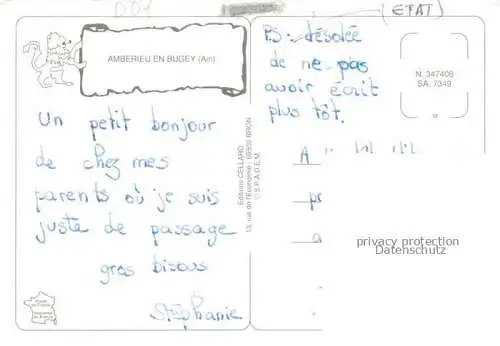 (ETAT)
AMBERIEU EN BUGEY (Ain)
Un petit bonjour
de chez mes
parents où je suis
juste de passage
gros bisous
Stéphanie
PS: désolée
de ne pas
avoir écrit
plus tôt.
N. 347406
SA. 7349
Editions CELLARD
13, rue de l'Economie - 69500 BRON
© S.P.A.D.E.M.
A
privacy protection
Datenschutz